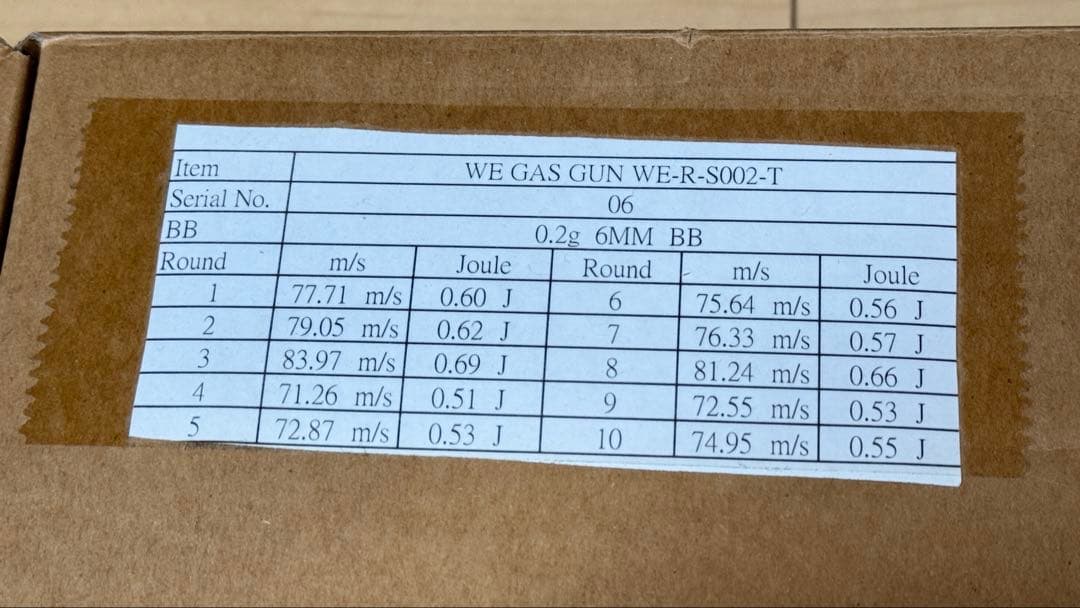 Item WE GAS GUN WE-R-S002-T
Serial No. 06
BB 0.2g 6MM BB
Round m/s Joule Round m/s Joule
1 77.71 m/s 0.60 J 6 75.64 m/s 0.56 J
2 79.05 m/s 0.62 J 7 76.33 m/s 0.57 J
3 83.97 m/s 0.69 J 8 81.24 m/s 0.66 J
4 71.26 m/s 0.51 J 9 72.55 m/s 0.53 J
5 72.87 m/s 0.53 J 10 74.95 m/s 0.55 J